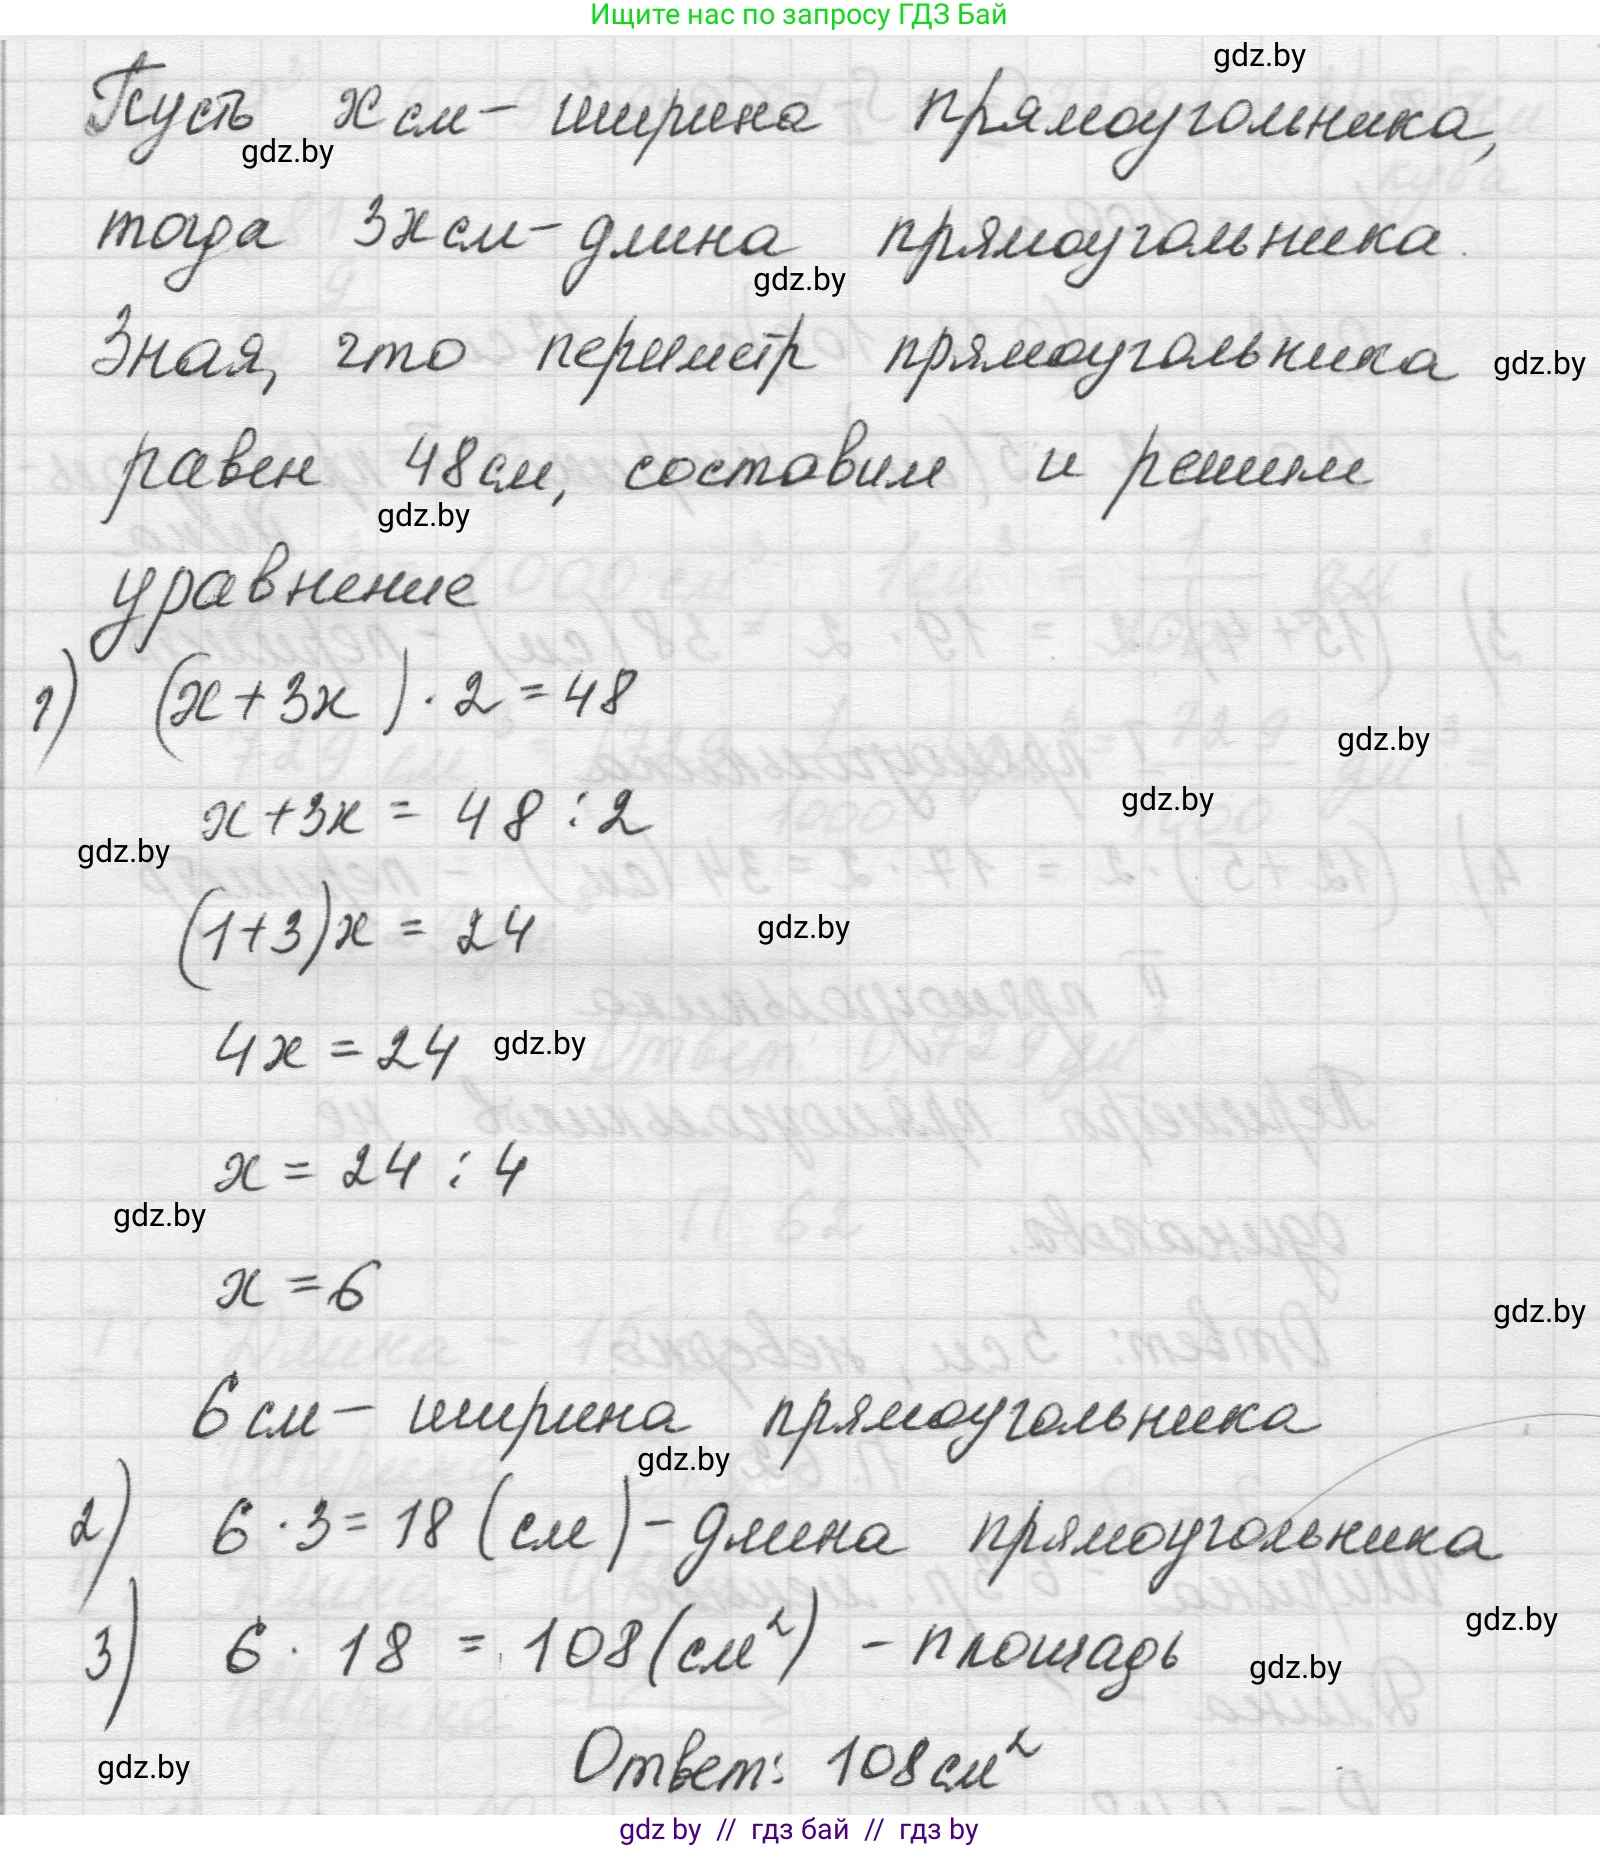 Ищите нас по запросу ГДЗ Бай
gdz.by
Пусть x см - ширина прямоугольника,
gdz.by
тогда 3x см - длина прямоугольника.
gdz.by
Зная, что периметр прямоугольника
gdz.by
равен 48 см, составим и решим
gdz.by
уравнение
1) (x + 3x) · 2 = 48
gdz.by
gdz.by
x + 3x = 48 : 2
gdz.by
(1 + 3)x = 24
gdz.by
4x = 24
gdz.by
x = 24 : 4
gdz.by
x = 6
gdz.by
6 см - ширина прямоугольника
gdz.by
2) 6 · 3 = 18 (см) - длина прямоугольника
gdz.by
3) 6 · 18 = 108 (см²) - площадь
gdz.by
Ответ: 108 см²
gdz.by
gdz by // гдз бай // гдз by